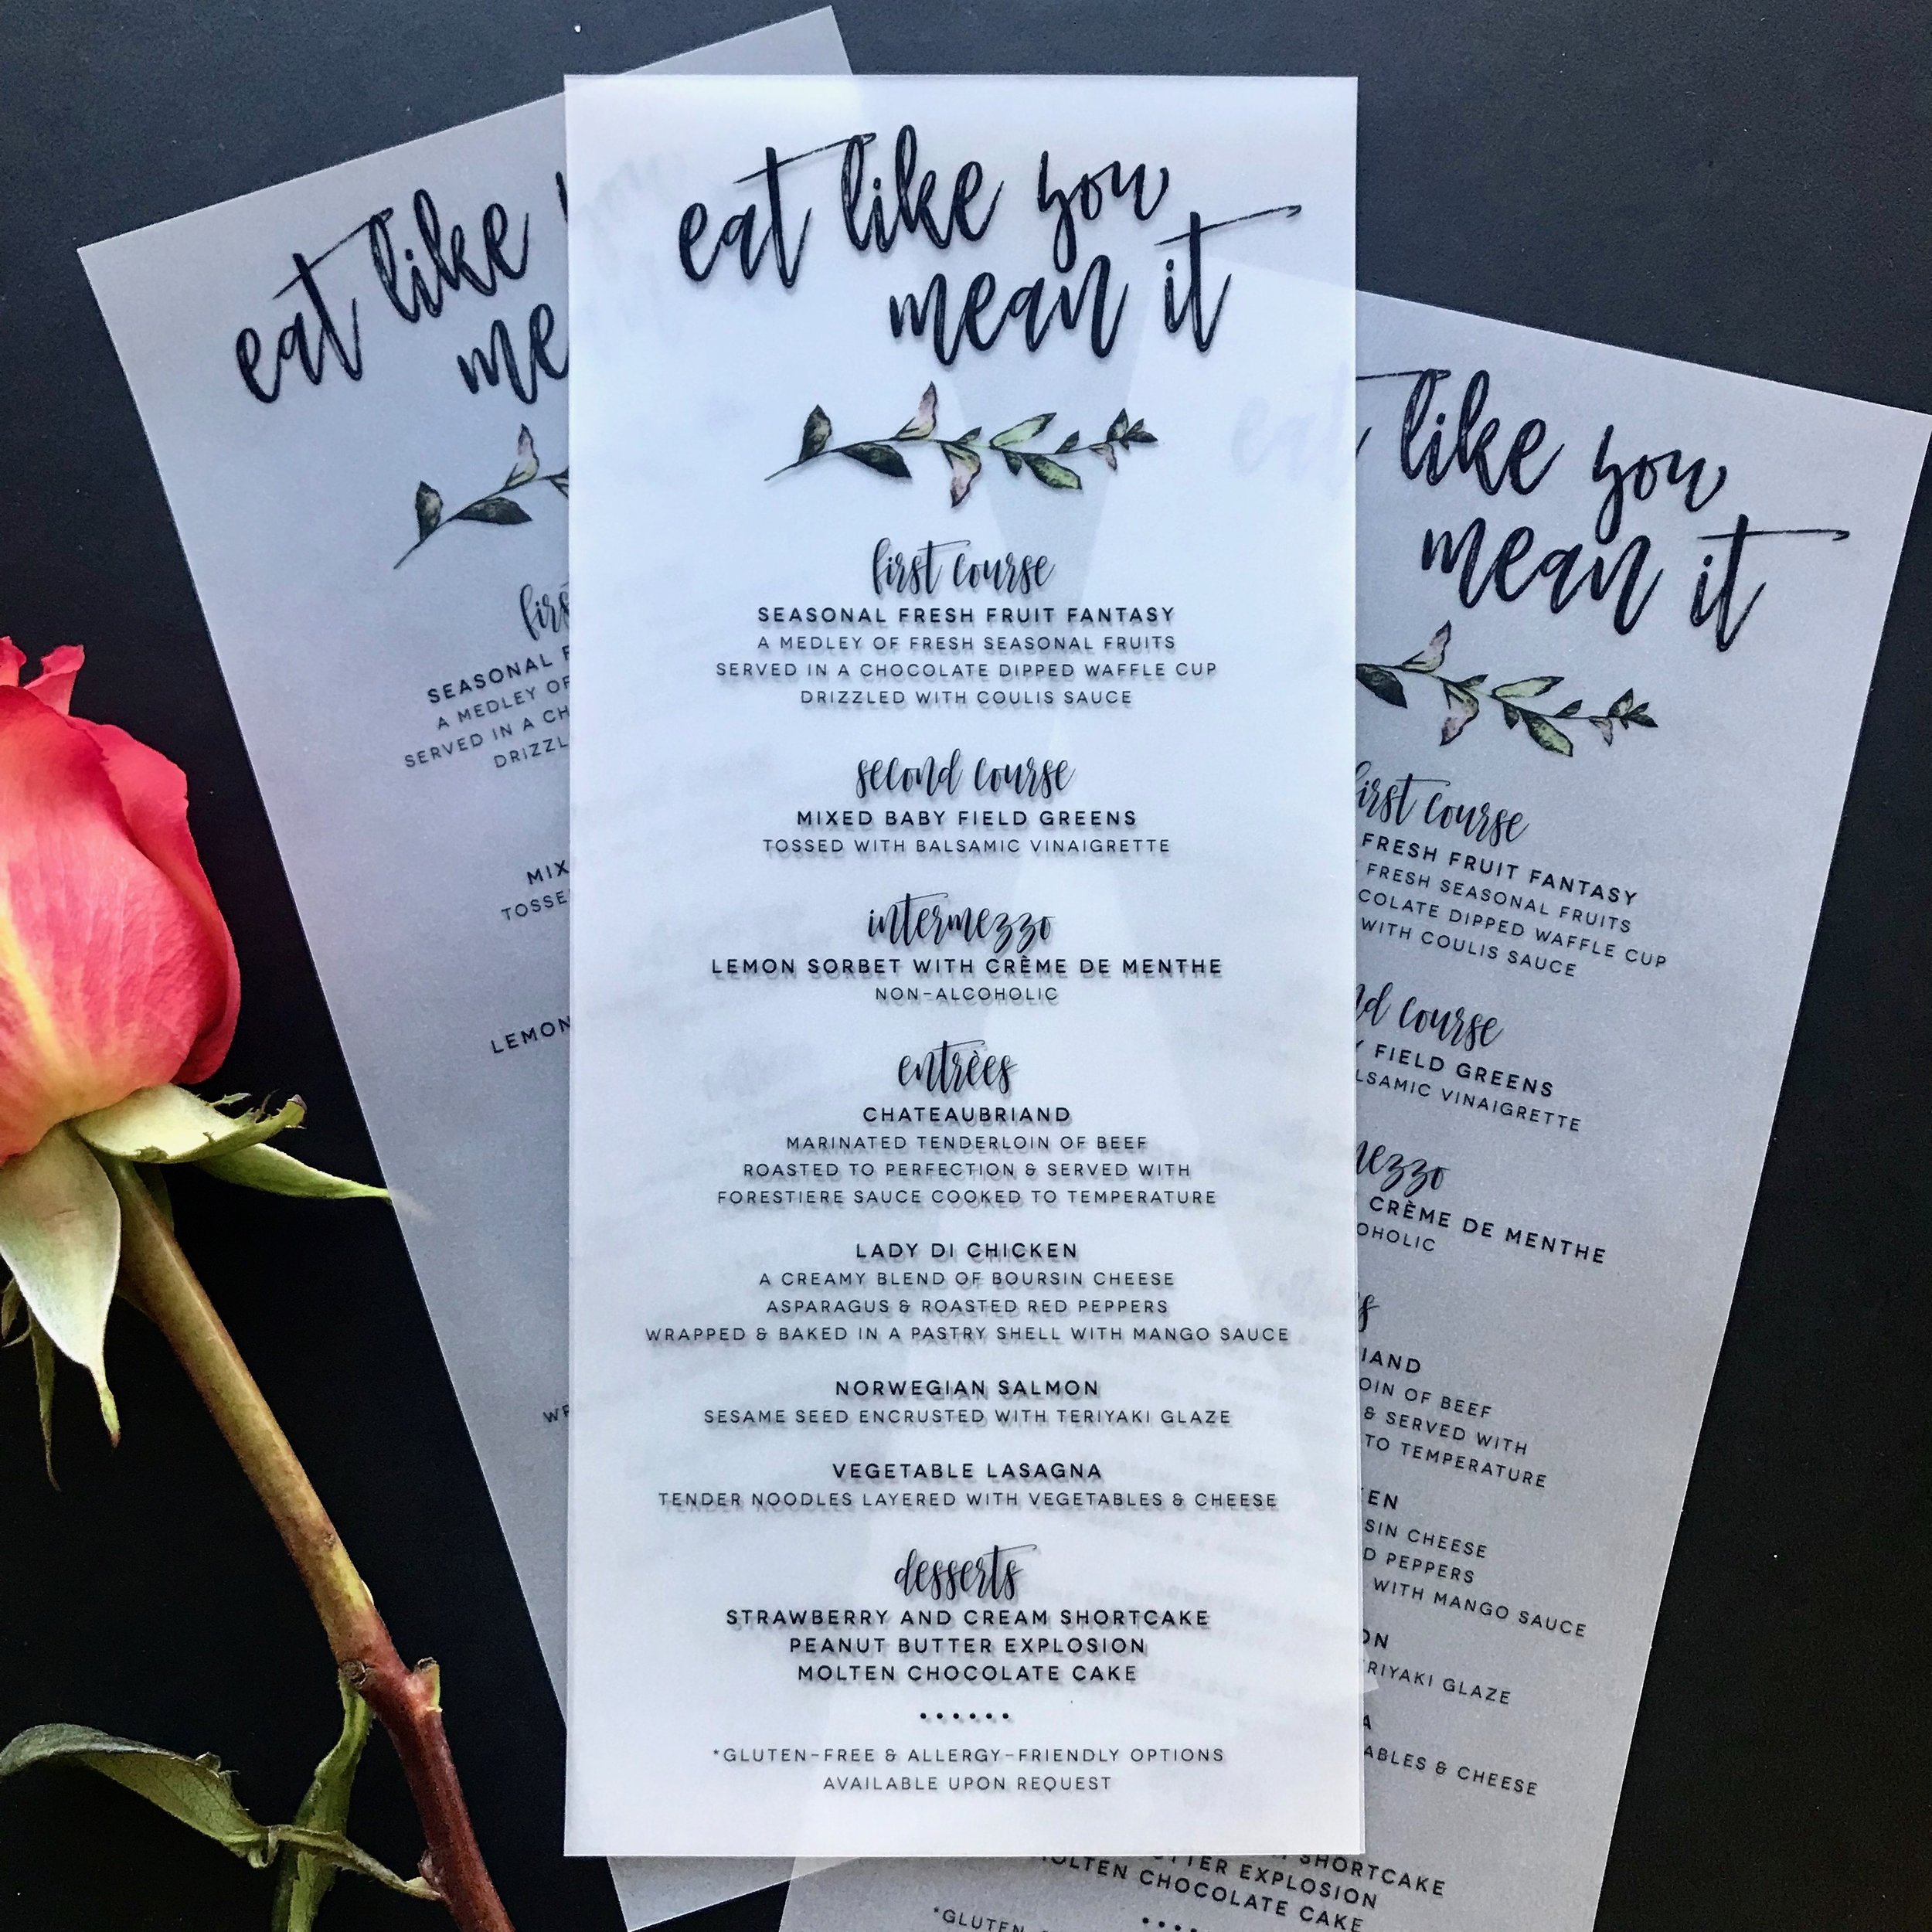 eat like you
mean it
first course
SEASONAL FRESH FRUIT FANTASY
A MEDLEY OF FRESH SEASONAL FRUITS
SERVED IN A CHOCOLATE DIPPED WAFFLE CUP
DRIZZLED WITH COULIS SAUCE
second course
MIXED BABY FIELD GREENS
TOSSED WITH BALSAMIC VINAIGRETTE
intermezzo
LEMON SORBET WITH CRÈME DE MENTHE
NON-ALCOHOLIC
entrèes
CHATEAUBRIAND
MARINATED TENDERLOIN OF BEEF
ROASTED TO PERFECTION & SERVED WITH
FORESTIERE SAUCE COOKED TO TEMPERATURE
LADY DI CHICKEN
A CREAMY BLEND OF BOURSIN CHEESE
ASPARAGUS & ROASTED RED PEPPERS
WRAPPED & BAKED IN A PASTRY SHELL WITH MANGO SAUCE
NORWEGIAN SALMON
SESAME SEED ENCRUSTED WITH TERIYAKI GLAZE
VEGETABLE LASAGNA
TENDER NOODLES LAYERED WITH VEGETABLES & CHEESE
desserts
STRAWBERRY AND CREAM SHORTCAKE
PEANUT BUTTER EXPLOSION
MOLTEN CHOCOLATE CAKE
......
*GLUTEN-FREE & ALLERGY-FRIENDLY OPTIONS
AVAILABLE UPON REQUEST
eat like
SEASONAL
A MEDLEY OF
SERVED IN A
LEMON
like you
mean it
first course
FRESH FRUIT FANTASY
FRESH SEASONAL FRUITS
DIPPED WAFFLE CUP
WITH COULIS SAUCE
course
FIELD GREENS
VINAIGRETTE
CRÈME DE MENTHE
OF BEEF
& SERVED WITH
TO TEMPERATURE
CHEESE
PEPPERS
WITH MANGO SAUCE
GLAZE
& CHEESE
SHORTCAKE
EXPLOSION
CHOCOLATE CAKE